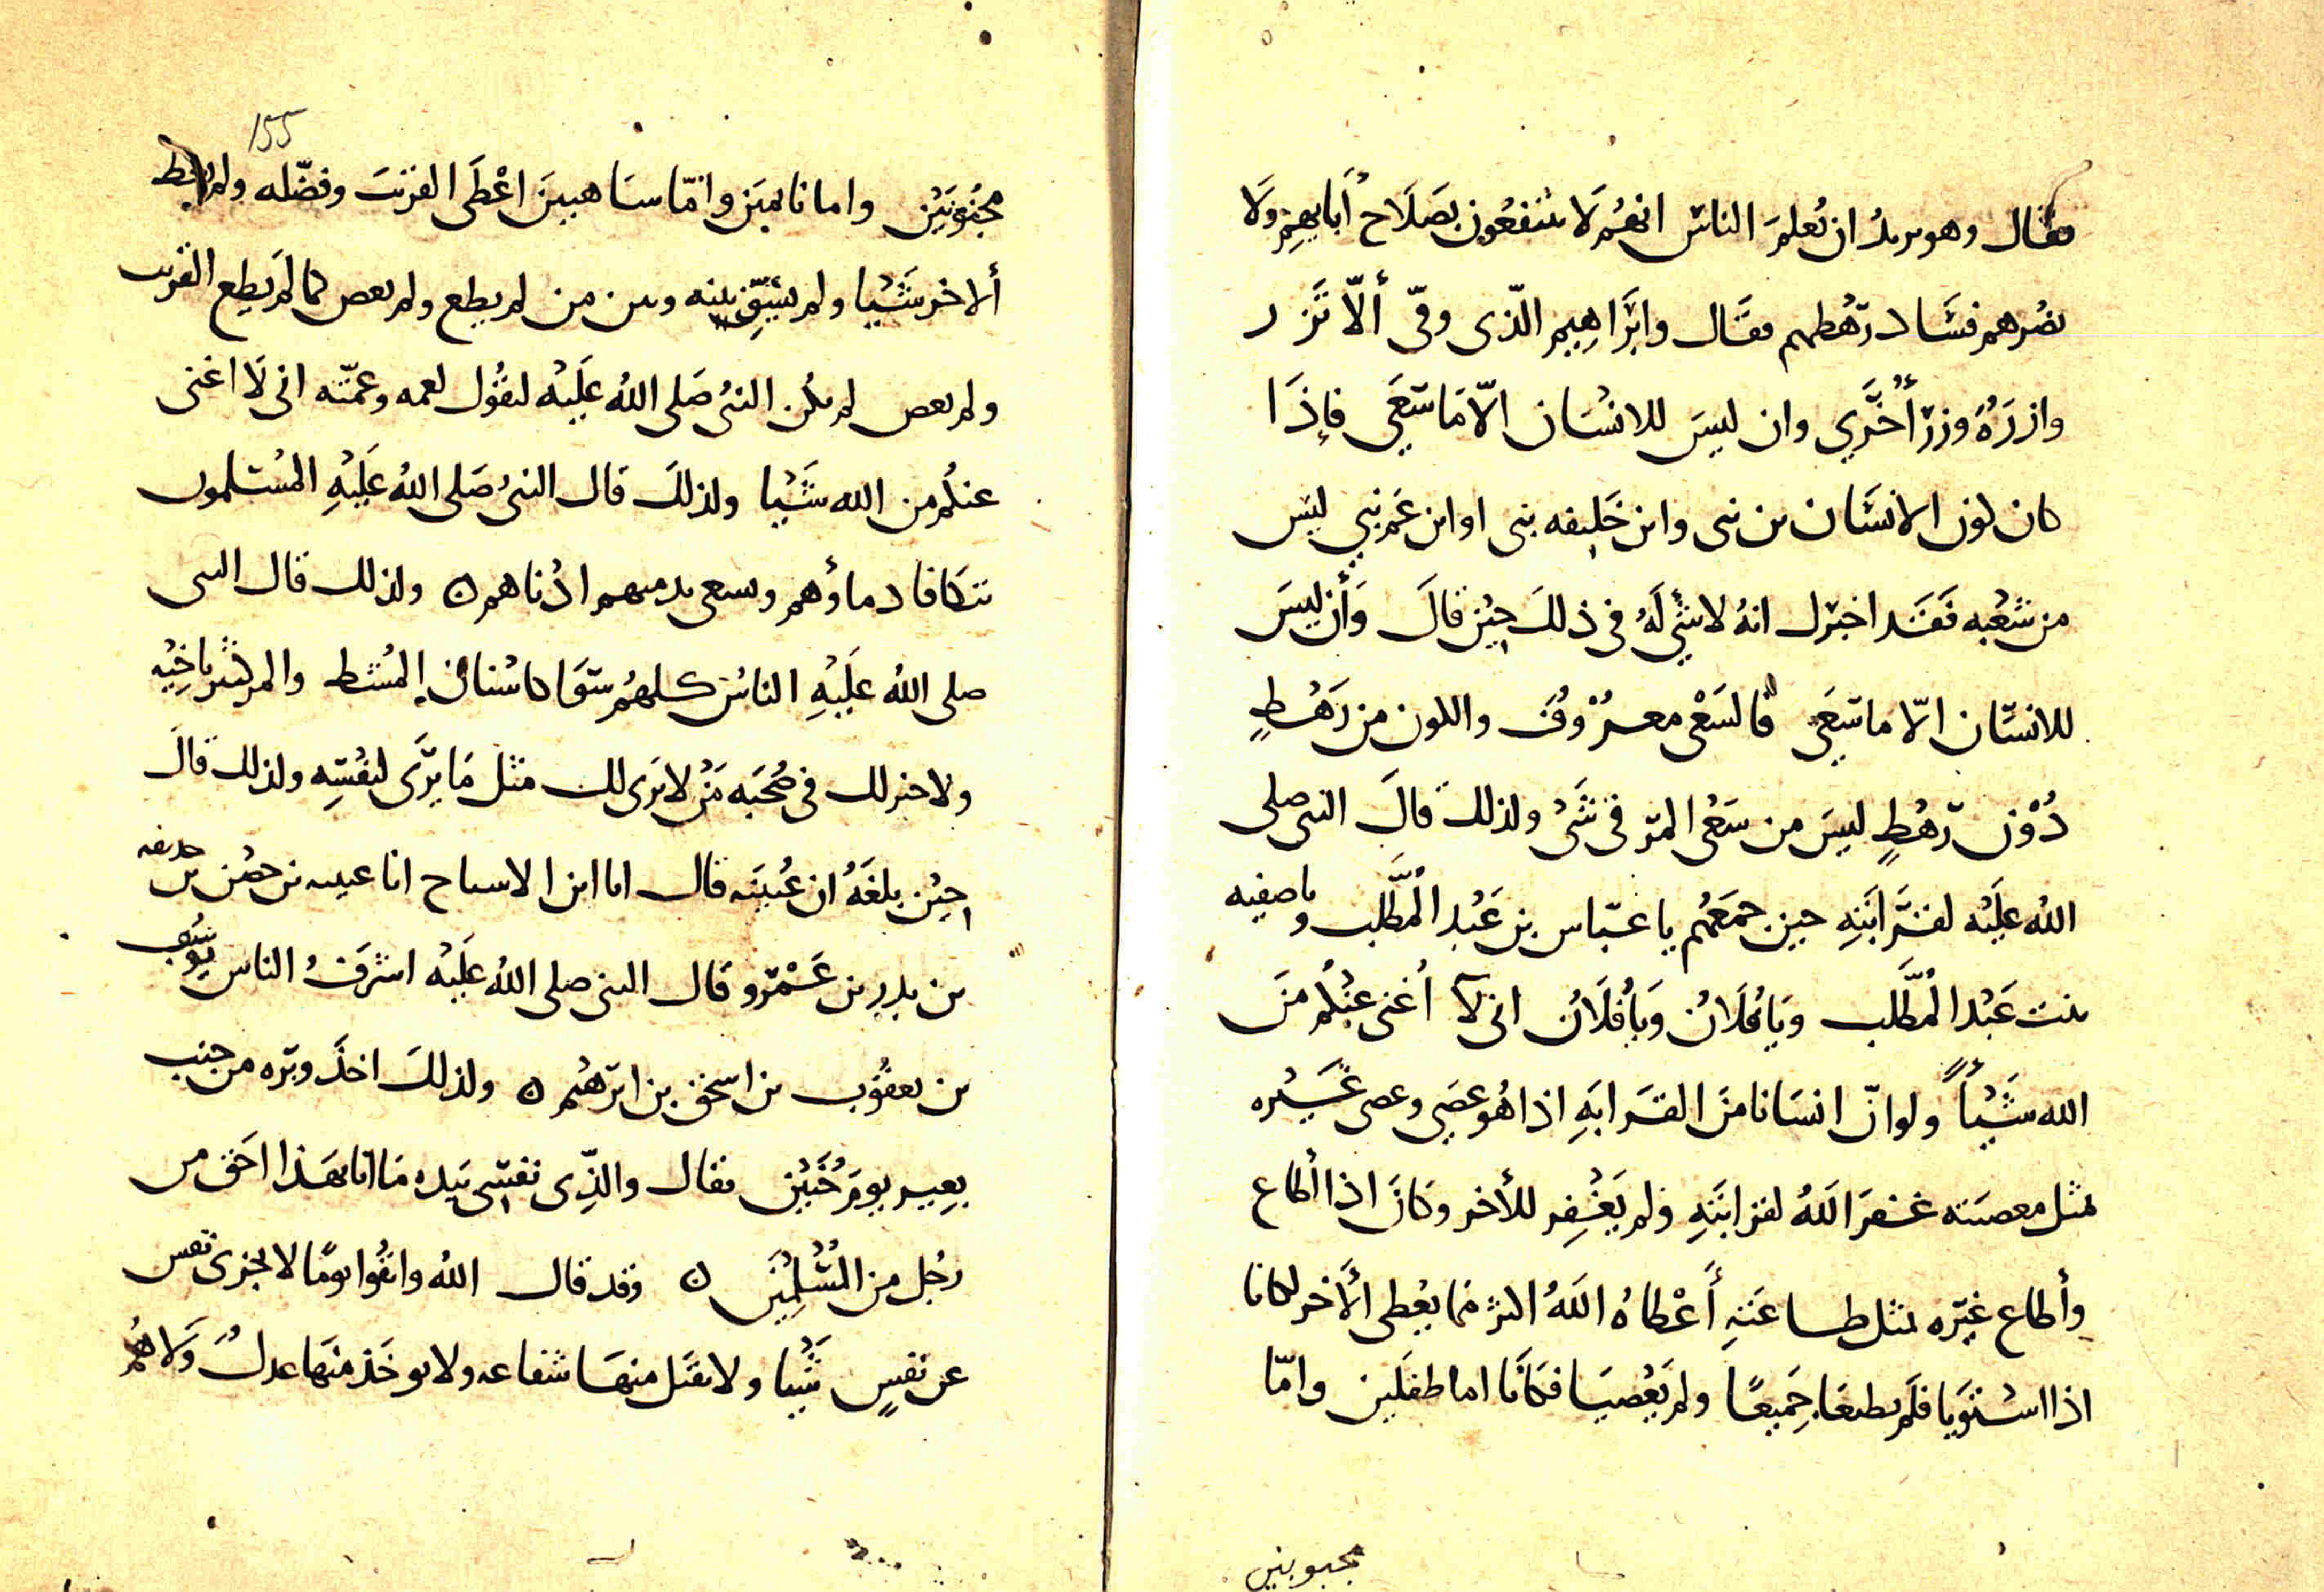 فقال وهو يريد ان يُعلمَ الناسَ انهُم لا ينتفعُون بصَلَاح آبايهِم ولا
يضُرهم فسَاد رَهْطهم فقال وابرَاهِيم الّذى وفّى ألّا تَزِر
وازرَةٌ وزرَ أُخرَي وان ليسَ للانسَان الّا مَا سَعَي فإذَا
كان لون الانسَان من نبى وابن خَليفه نبى او ابن عَم نبي ليسَ
من سَعْيه فَقَد اخبرك انهُ لا شيْ لَهُ فى ذلكَ حِيْن قالَ وَأن ليسَ
للانسَان الّا ما سَعَي فالسَعْي معرُوْف واللون من رَهْطٍ
دُوْن رَهْطٍ ليسَ من سَعْى المرَ فى شَىْ ولذلكَ قالَ النبى صلى
اللهُ عَلَيْه لقرَابَتِهِ حين جمَعَهُم يا عبّاس بن عَبْد المُطَّلب ويا صفيه
بنت عَبْد المُطَّلب وَيا فُلَانُ وَيا فُلَانُ انى لآ أُغنى عَنْكُم منَ
الله شَيْـًٔا ولو انّ انسَانا منَ القرَابَهِ اذا هُو عصَي وعصى غَيْره
بمثل معصيَته غفرَ اللهُ لقرابَتهِ ولم يَغْفِر للأخر وكانَ اذا أطاع
وأطاع غيَره بمثل طاعَتهِ أَعْطاهُ اللَهُ اكثر مما يُعْطى ألآخر لكانا
اذا اسْتَوَيا فلَم يطيعَا جَميعًا ولم يَعْصيَا فكَانَا اما طفلَين وامّا
مجبوبين
155
مجنُونَيْن واما نايمَين وامّا سَاهيينَ اعْطَى القريبَ وفضّله ولم يعط
ألاخر شَيْيا ولم يَبْقَ بينه وبين من لم يطع ولم يعص كما لَم يطِع القريب
ولم يعص لم يكُن النبىُ صَلى اللهُ عَلَيْه ليقُول لعمه وعمّته انى لَا اغنى
عنكُم من الله شَيْيا ولذلكَ قال النبىُ صَلى اللهُ عَلَيْهِ المُسْلمون
تتكَافا دماؤهم ويسعى بذمتهم ادْناهم ٥ ولذلك قال النبى
صلى اللهُ عَلَيْهِ الناسُ كلهُم سَوَا كاسْنان المُشط والمر كثير باخِيْه
ولا خير لك فى صُحْبَه مَنْ لا يَرَى لك مثل مَا يَرَى لنفْسِه ولذلك قالَ
حِيْن بلغَهُ ان عُيَيْنَه قال انا ابن الاشياخ انا عيينه بن حصْن بن حذيفه
بن بدر بن عَمْرو قال النبى صلى اللهُ عَلَيْه اشرَفُ الناس يوسُف
بن يعقُوب بن اسحَق بن ابرَهيْم ٥ ولذلكَ اخذَ وبرَه من جنب
بعِير يومَ حُنَيْن فقال والّذِى نفسِى بيَده مَا انا بهَذا احَق من
رجُل من المُسْلِميْنَ ٥ وقد قال اللهُ واتقُوا يومًا لا تجزى نفس
عن نفسٍ شَيْيا ولا يقبَل منهَا شفاعه ولا يوخَذ منهَا عدلٌ وَلَا هُم